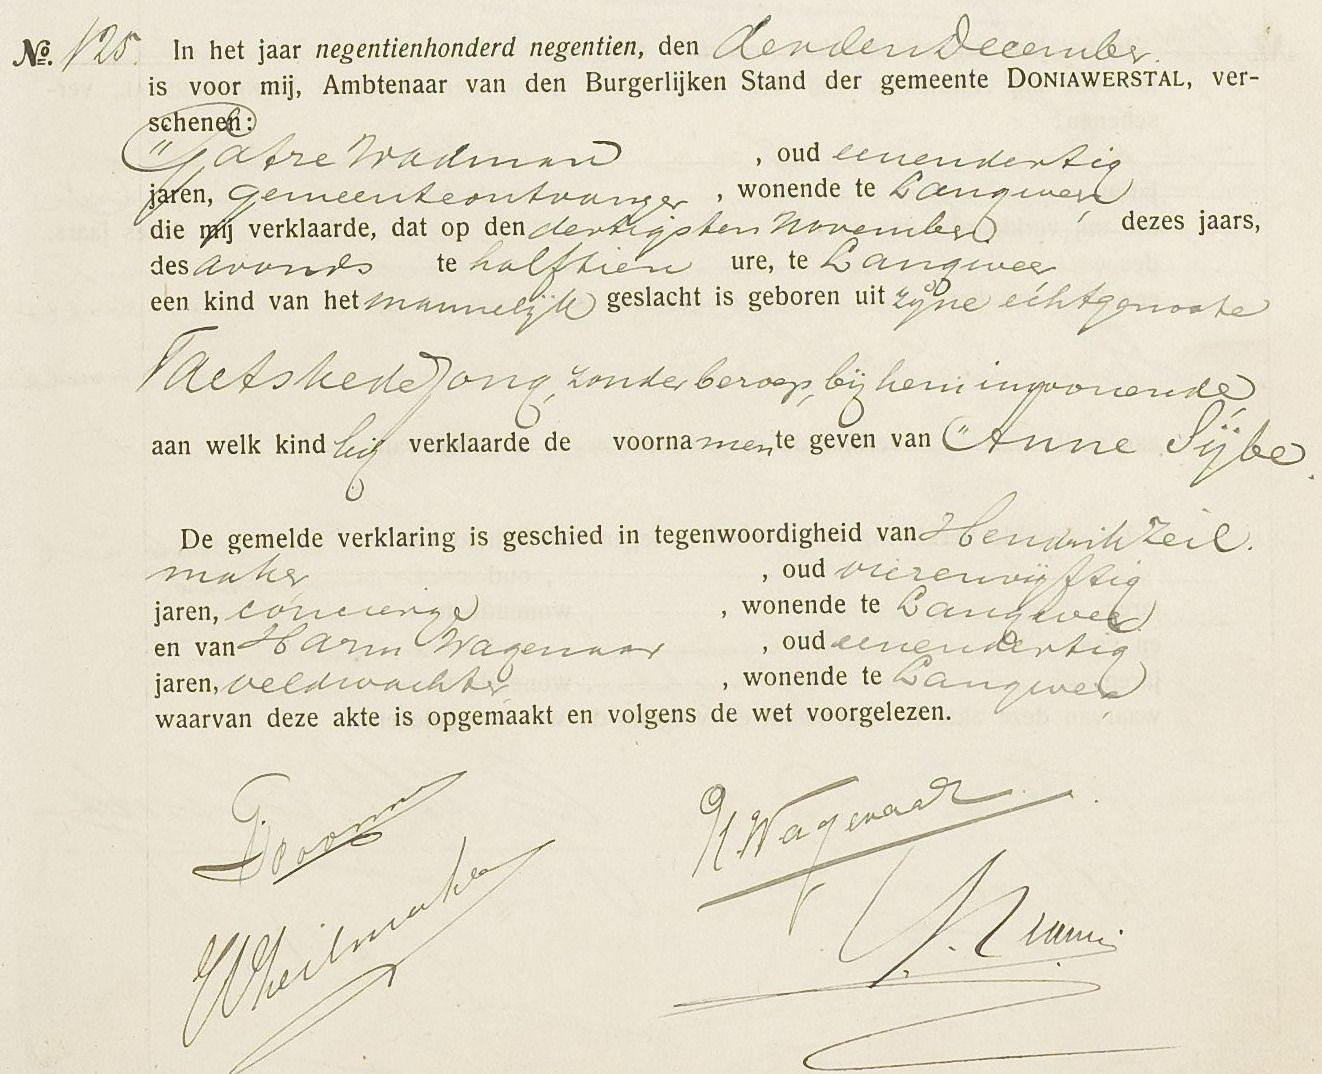 No. 125. In het jaar negentienhonderd negentien, den derden December.
is voor mij, Ambtenaar van den Burgerlijken Stand der gemeente DONIAWERSTAL, ver-
schenen:
"Gatze Wadman , oud eenendertig
jaren, gemeenteontvanger , wonende te Langweer
die mij verklaarde, dat op den dertigsten November dezes jaars,
des avonds te halftien ure, te Langweer
een kind van het mannelijk geslacht is geboren uit zijne echtgenoote
Taetske de Jong, zonder beroep, bij hem inwonende
aan welk kind hij verklaarde de voornamen te geven van "Anne Sÿbe.
De gemelde verklaring is geschied in tegenwoordigheid van Hendrik Zeil.
maker , oud vierenvijftig
jaren, concierge , wonende te Langweer
en van Harm Wagenaar , oud eenendertig
jaren, veldwachter , wonende te Langweer
waarvan deze akte is opgemaakt en volgens de wet voorgelezen.
H Wagenaar.
HZeilmaker